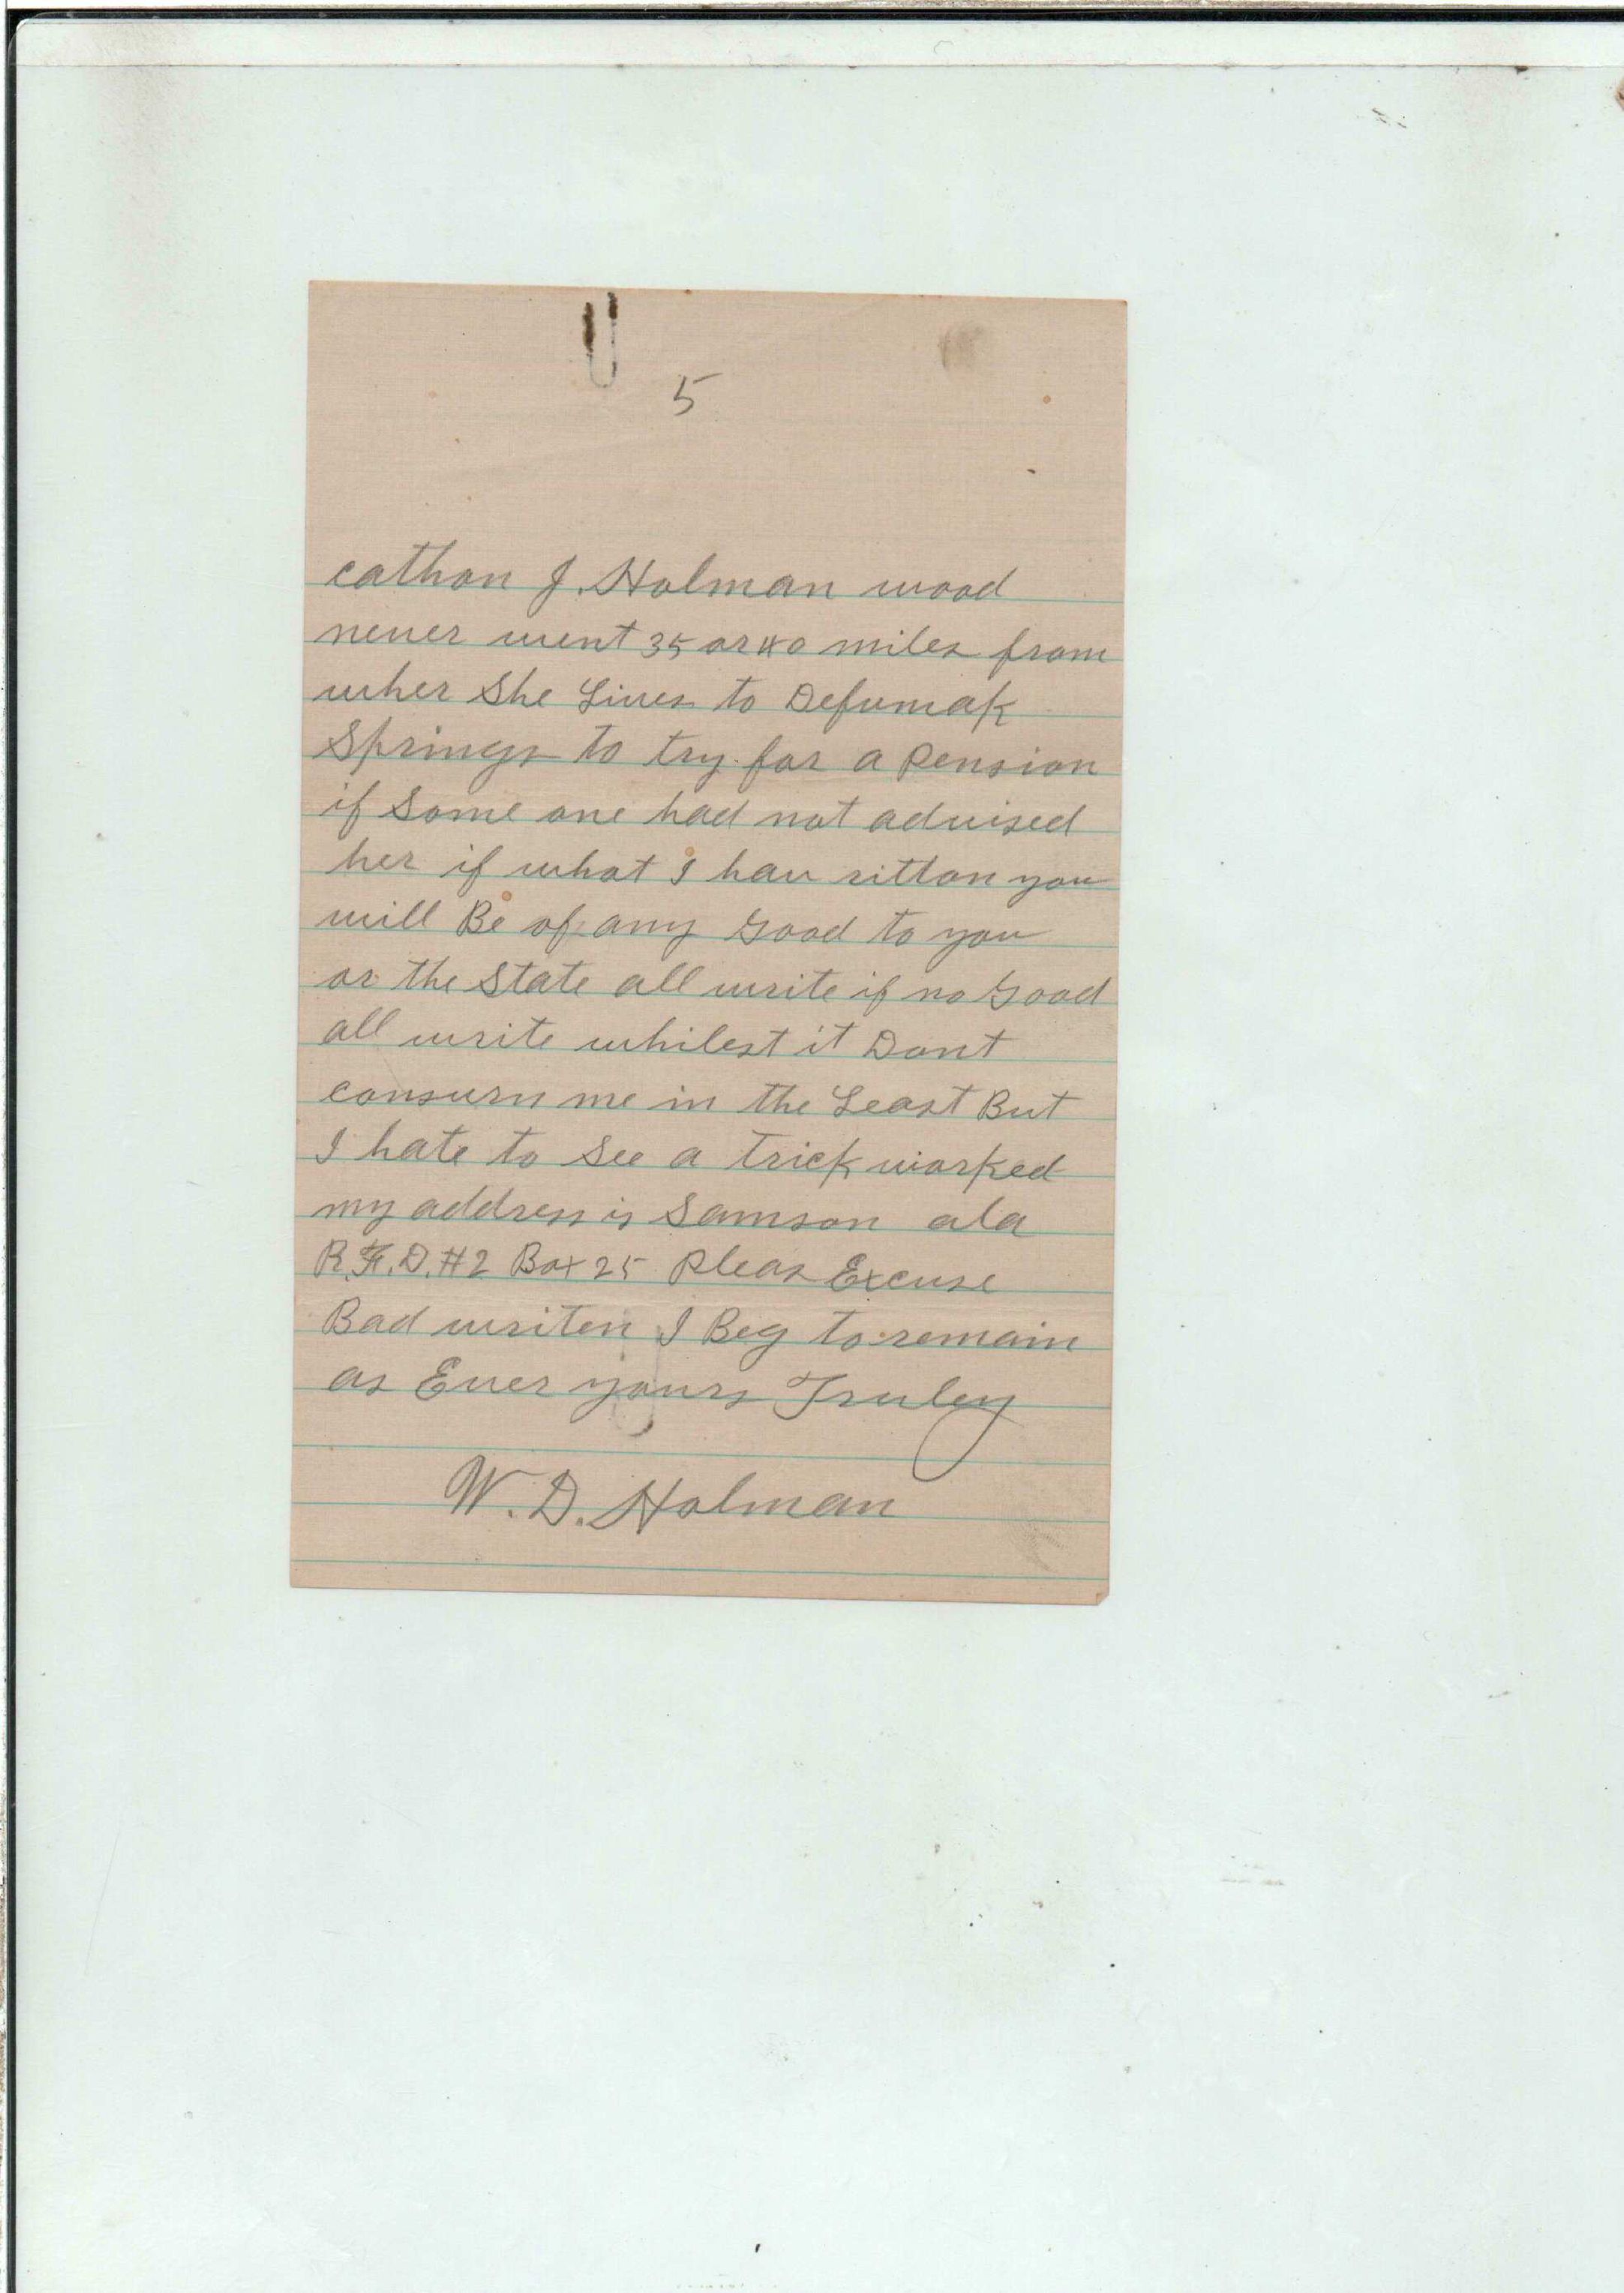 5
cathon J. Holman wood
never went 35 or 40 miles from
wher She Lives to Defumak
Springs to try for a Pension
if Some one had not advised
her if what I hav ritton you
will Be of any Good to you
or the State all write if no Good
all write whilest it Dont
consurn me in the Least But
I hate to See a trick worked
my address is Samson ala
R.F.D. #2 Box 25 Pleas Excuse
Bad writen I Beg to remain
as Ever yours Truley
W. D. Holman